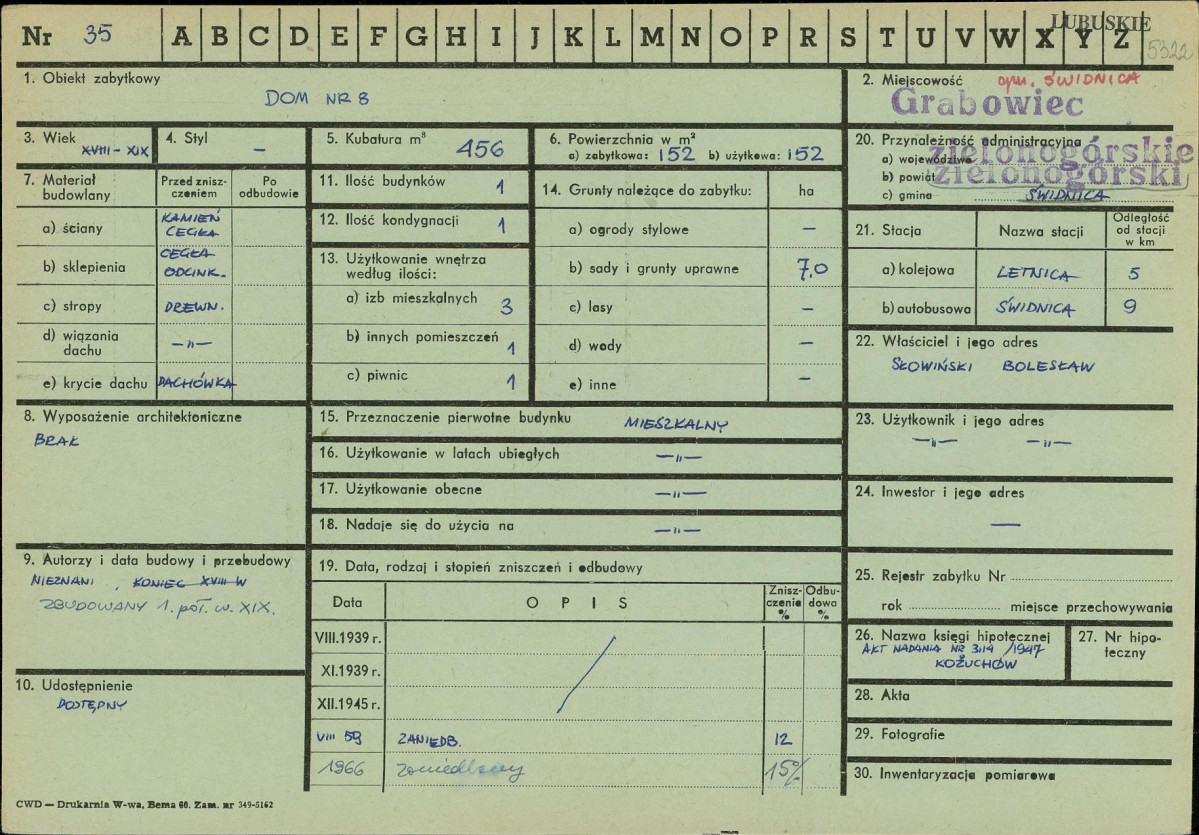 LUBUSKIE
Nr 35 A B C D E F G H I J K L M N O P R S T U V W X Y Z
5322
1. Obiekt zabytkowy
DOM NR 8
2. Miejscowość gm. ŚWIDNICA
Grabowiec
3. Wiek XVIII - XIX
4. Styl —
5. Kubatura m³ 456
6. Powierzchnia w m²
a) zabytkowa: 152 b) użytkowa: 152
20. Przynależność administracyjna
a) województwo zielonogórskie
b) powiat zielonogórski
c) gmina ŚWIDNICA
7. Materiał budowlany
Przed znisz-
czeniem
Po
odbudowie
a) ściany KAMIEŃ
CEGŁA
b) sklepienia CEGŁA
ODCINK.
c) stropy DREWN.
d) wiązania
dachu —„—
e) krycie dachu DACHÓWKA
11. Ilość budynków 1
12. Ilość kondygnacji 1
13. Użytkowanie wnętrza
według ilości:
a) izb mieszkalnych 3
b) innych pomieszczeń 1
c) piwnic 1
14. Grunty należące do zabytku: ha
a) ogrody stylowe —
b) sady i grunty uprawne 7,0
c) lasy —
d) wody —
e) inne —
21. Stacja Nazwa stacji
Odległość
od stacji
w km
a) kolejowa LETNICA 5
b) autobusowa ŚWIDNICA 9
22. Właściciel i jego adres
SŁOWIŃSKI BOLESŁAW
8. Wyposażenie architektoniczne
BRAK
15. Przeznaczenie pierwotne budynku MIESZKALNY
16. Użytkowanie w latach ubiegłych —„—
17. Użytkowanie obecne —„—
18. Nadaje się do użycia na —„—
23. Użytkownik i jego adres
—„— —„—
24. Inwestor i jego adres
—
9. Autorzy i data budowy i przebudowy
NIEZNANI, KONIEC XVIII W
ZBUDOWANY 1. poł. w. XIX.
10. Udostępnienie
DOSTĘPNY
19. Data, rodzaj i stopień zniszczeń i odbudowy
Data OPIS
Znisz-
czenia
%
Odbu-
dowa
%
VIII.1939 r.
XI.1939 r.
XII.1945 r.
VIII 59 ZANIEDB. 12
1966 zaniedbany 15%
25. Rejestr zabytku Nr
rok miejsce przechowywania
26. Nazwa księgi hipotecznej
AKT NADANIA NR 3114/1947
KOŻUCHÓW
27. Nr hipo-
teczny
28. Akta
29. Fotografie
30. Inwentaryzacja pomiarowa
CWD — Drukarnia W-wa, Bema 60. Zam. nr 349-5162